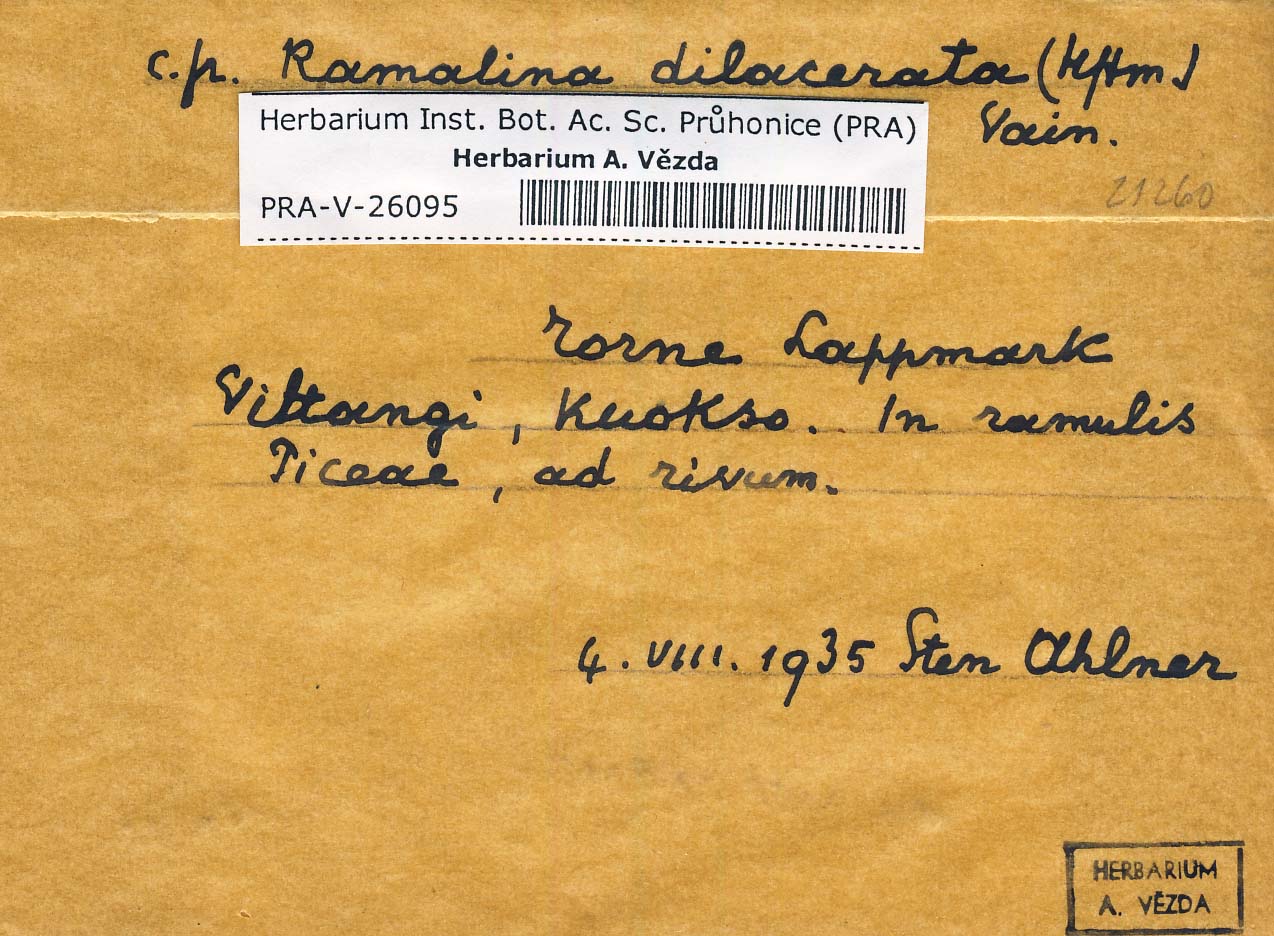 c.pr. Ramalina dilacerata (Hffm.)
Vain.
Herbarium Inst. Bot. Ac. Sc. Průhonice (PRA)
Herbarium A. Vězda
PRA-V-26095
21260
Torne Lappmark
Vittangi, Kuokso. In ramulis
Piceae, ad rivum.
4. VIII. 1935 Sten Ahlner
HERBARIUM
A. VĚZDA